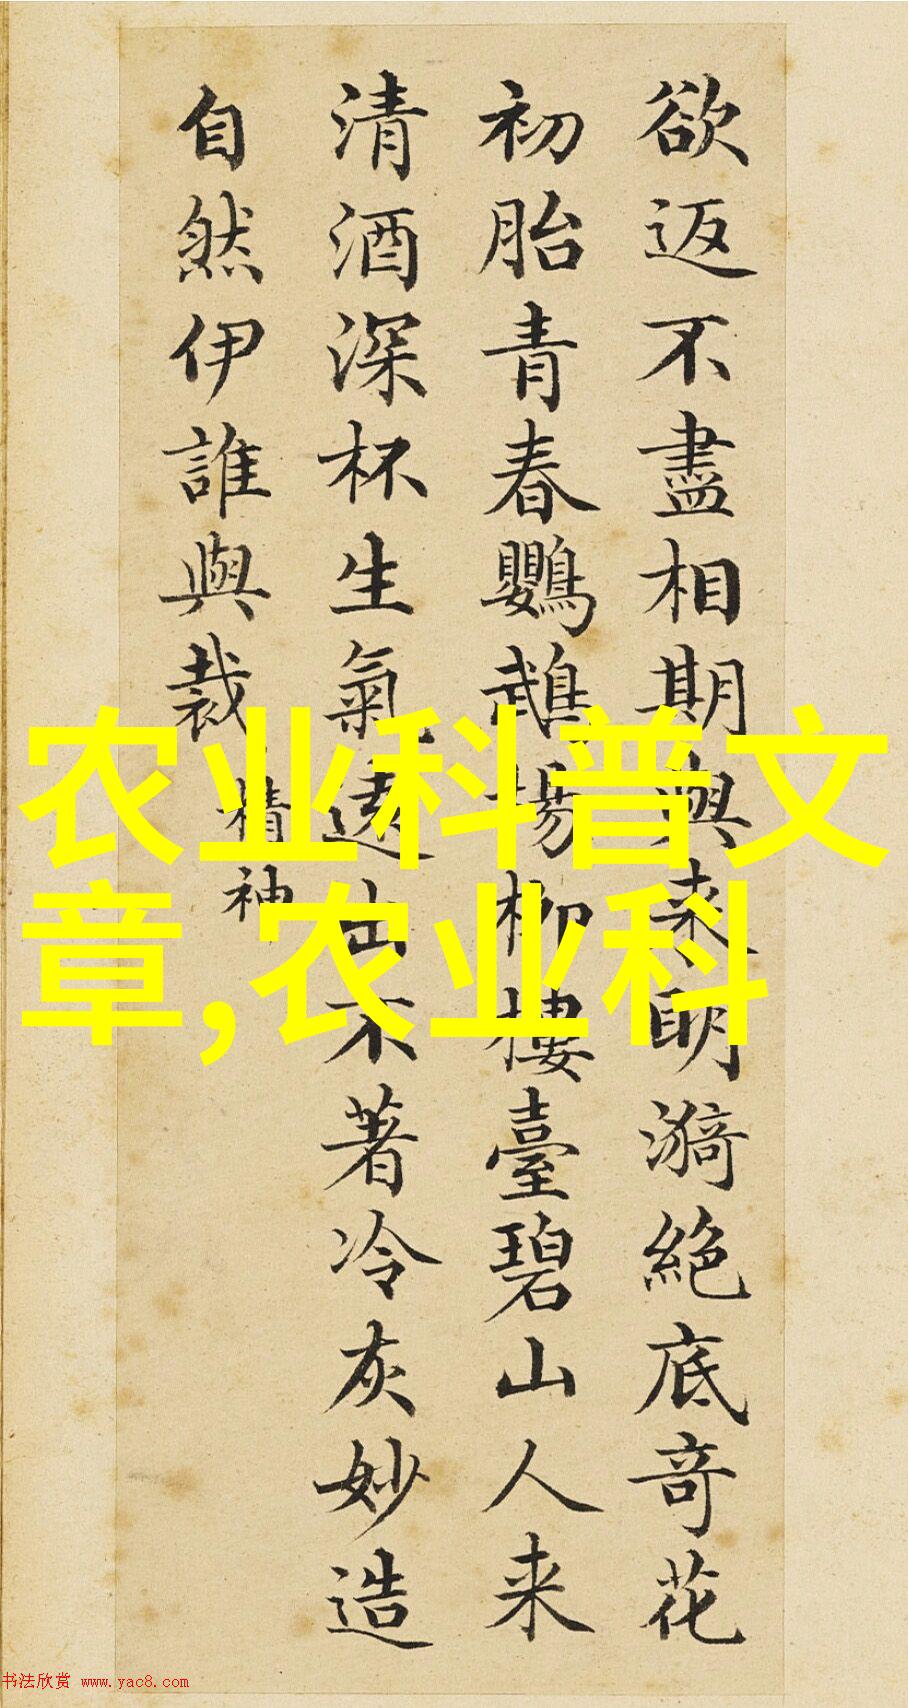 欲返不盡相期與来明漪絶底奇花
初胎青春鸚鵡楊柳樓臺碧山人来
清酒深杯生氣遠出不著冷灰妙造
自然伊誰與裁
精神
农业科普文
章,农业科
书法欣赏 www.yac8.com